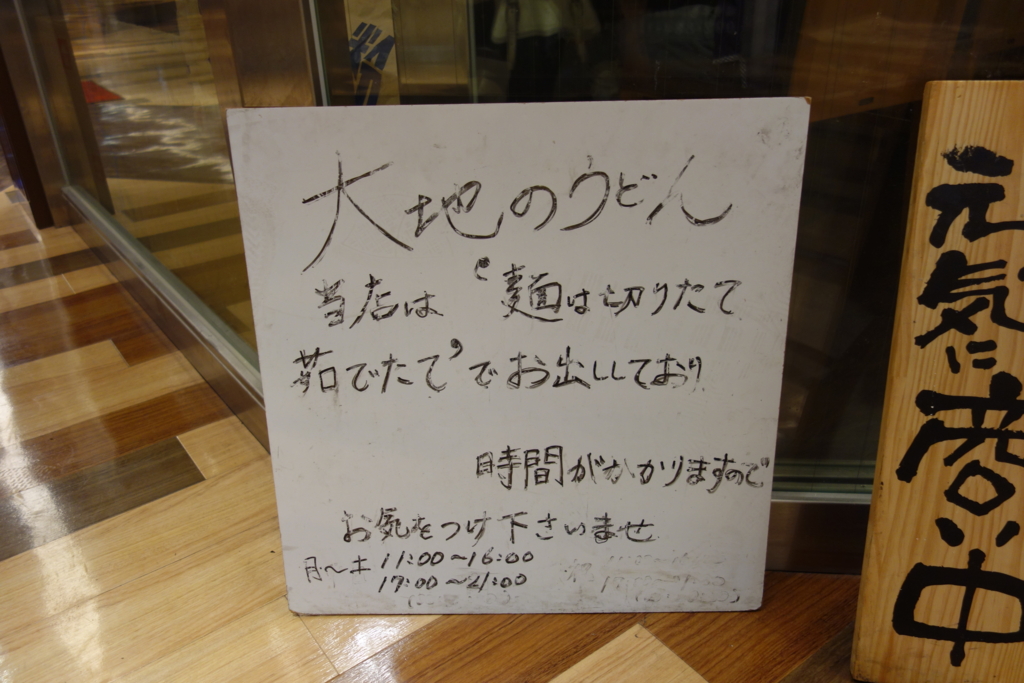 大地のうどん
当店は〝麺は切りたて
茹でたて〟でお出ししており
時間がかかりますので
お気をつけ下さいませ
月〜土 11:00〜16:00
17:00〜21:00
元気に商い中